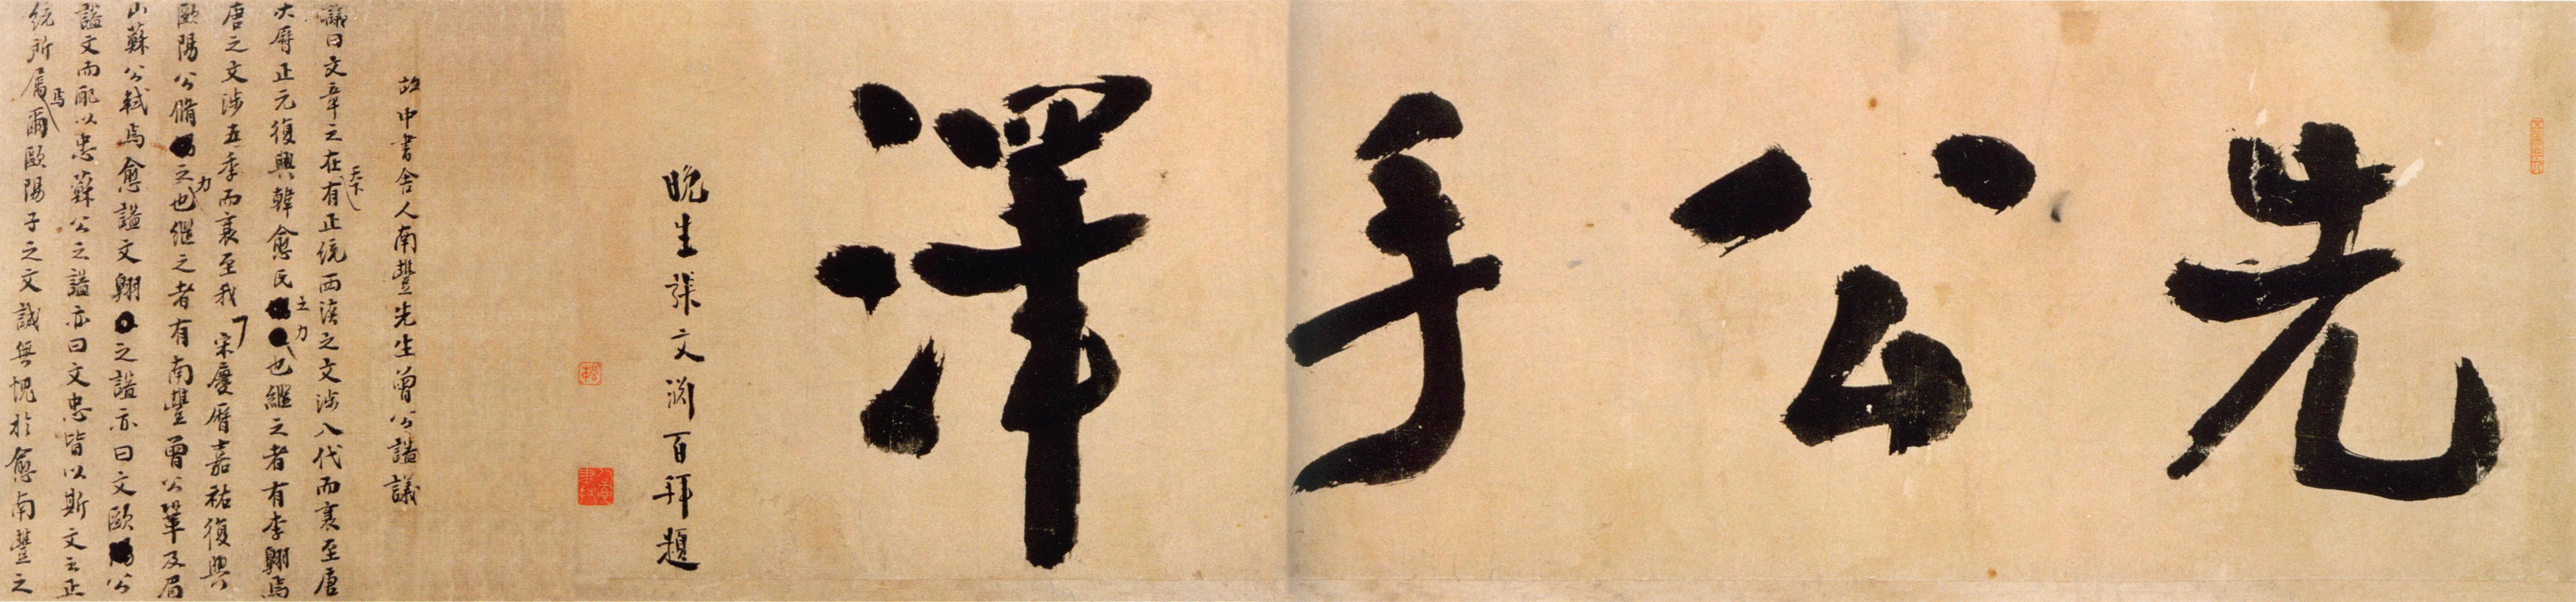 先公手澤
晚生張文淵百拜題
故中書舍人南豐先生曾公謚議
議曰文章之在天下有正統西漢之文涉八代而衰至唐
大曆正元復興韓愈氏之力也繼之者有李翱焉
唐之文涉五季而衰至我宋慶曆嘉祐復興
歐陽公脩之力也繼之者有南豐曾公鞏及眉
山蘇公軾焉愈謚文翱之謚亦曰文歐陽公
謚文而配以忠蘇公之謚亦曰文忠皆以斯文之正
統所屬焉爾歐陽子之文誠無愧於愈南豐之